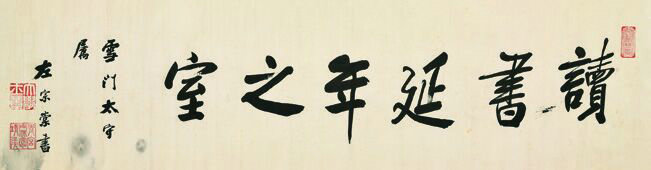 讀書延年之室
雪门太守
屬
左宗棠書